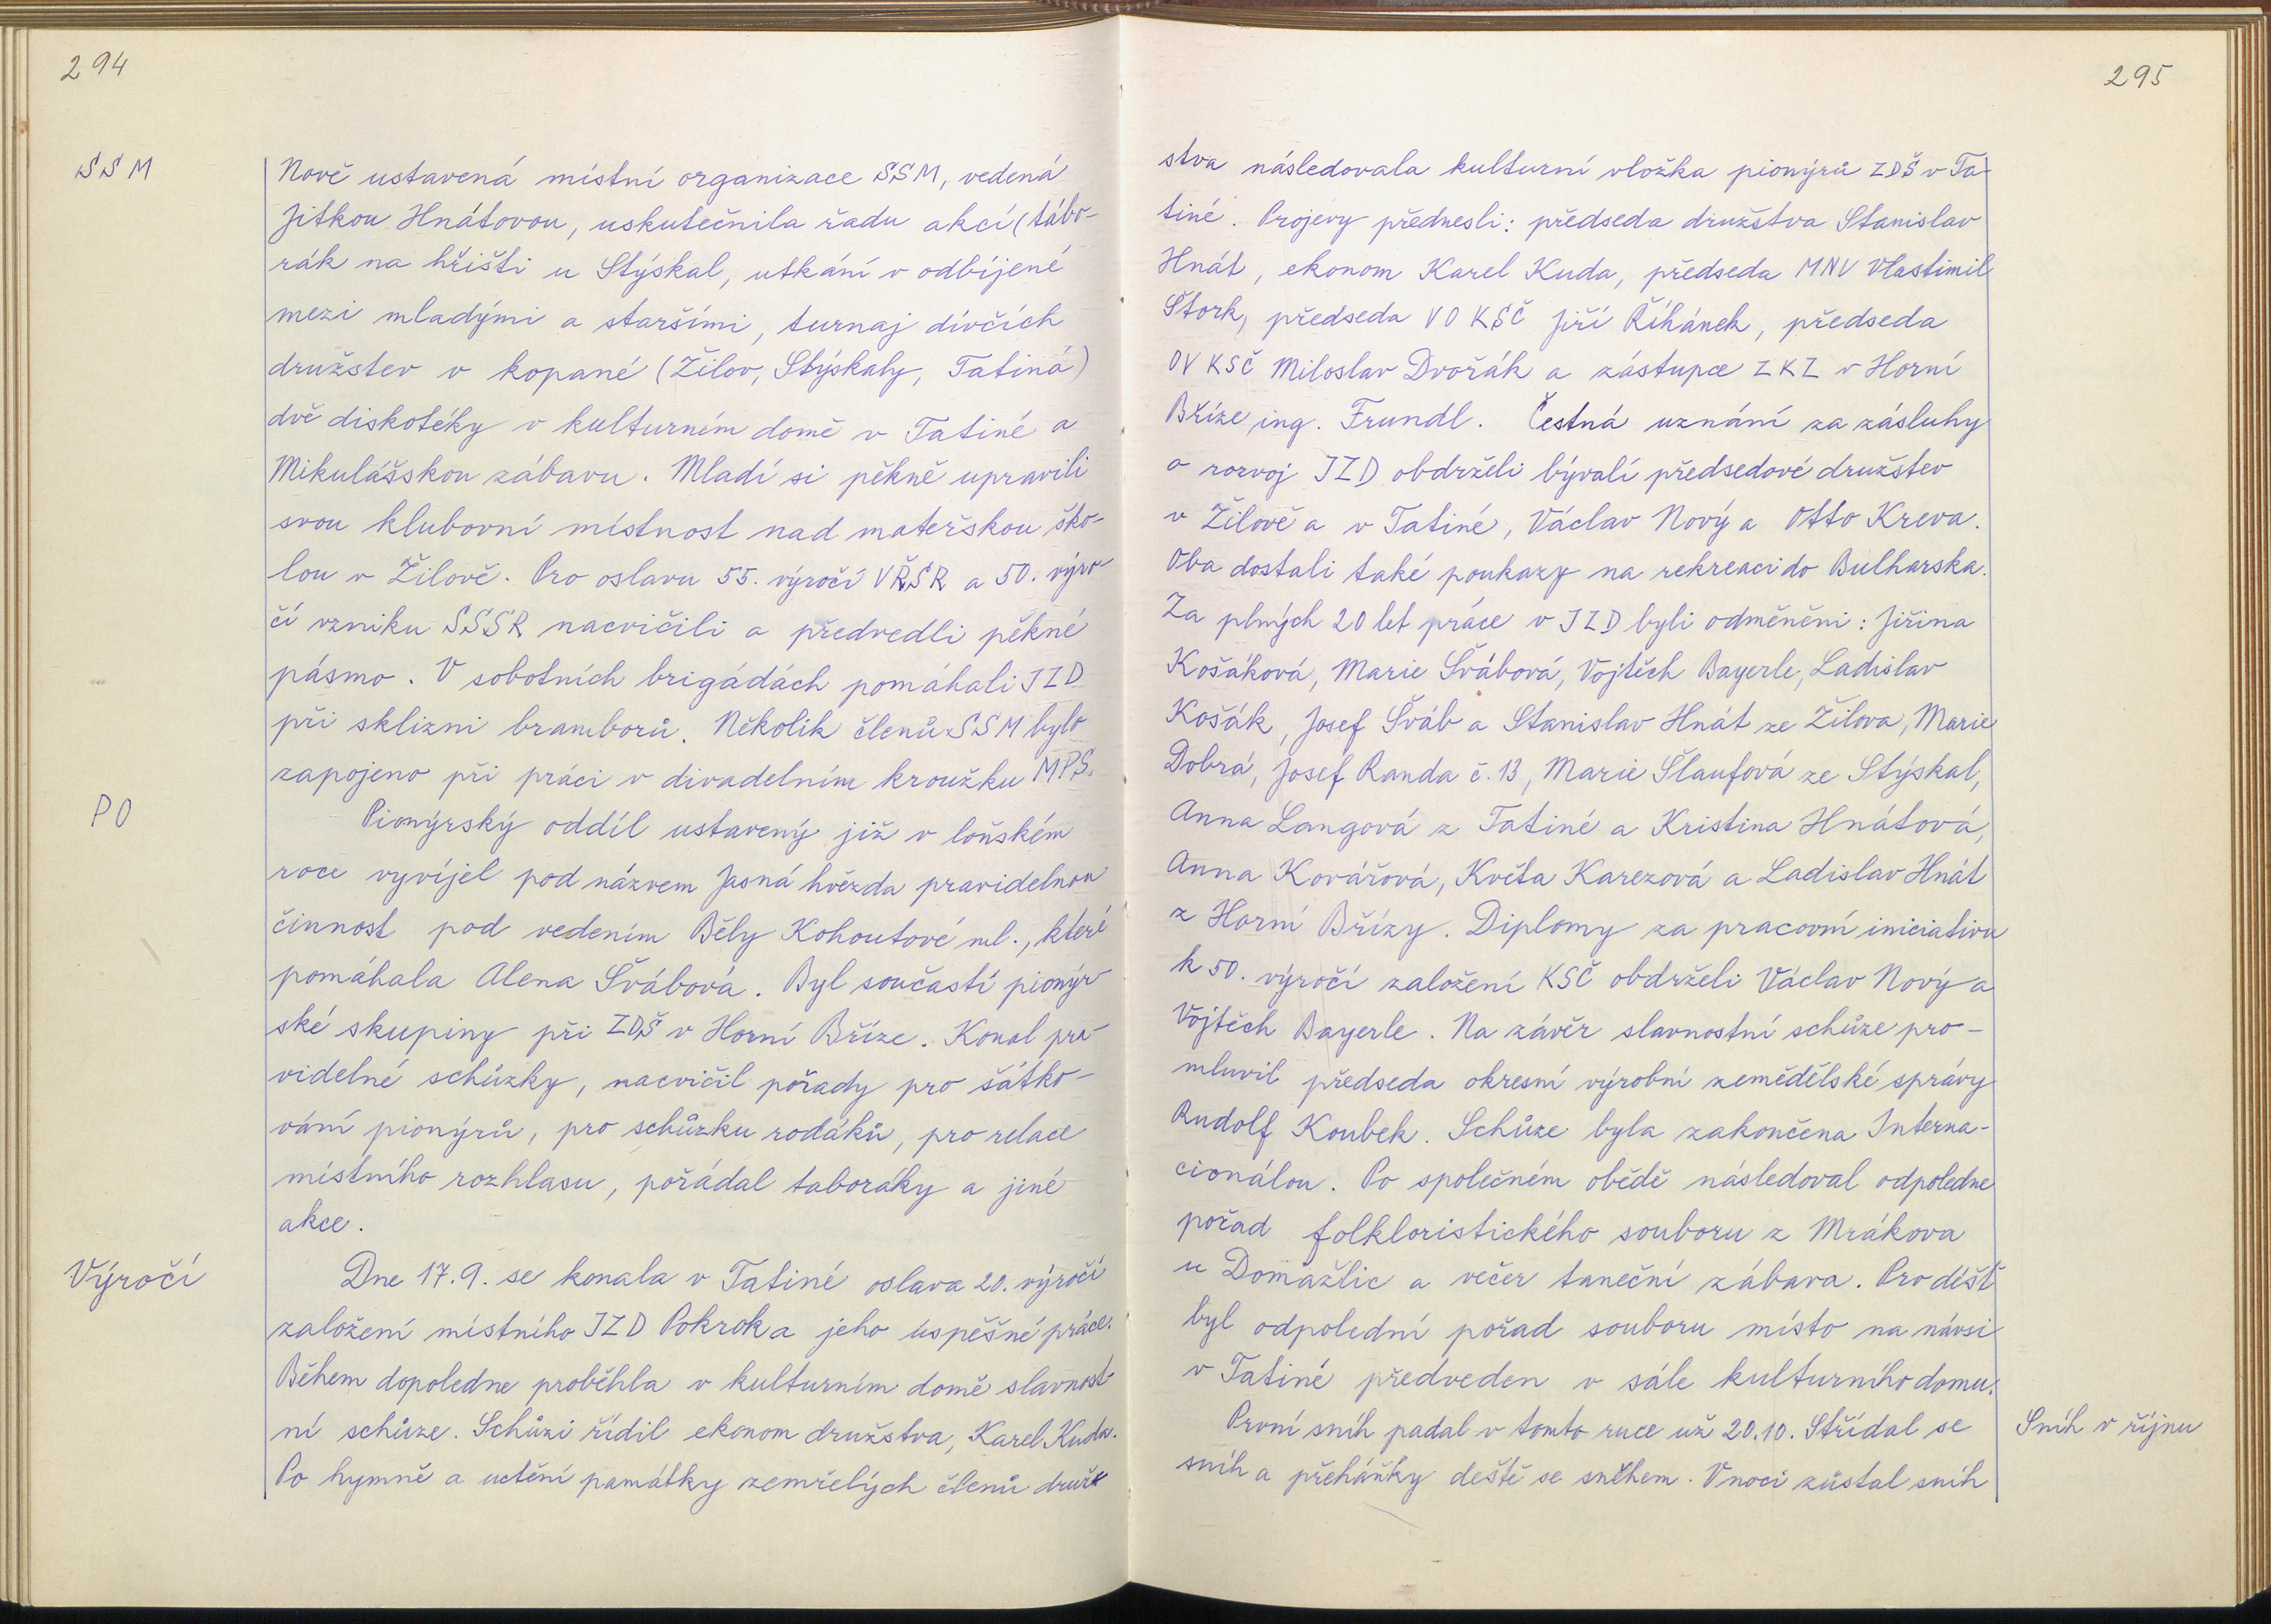 294
SSM
Nově ustavená místní organizace SSM, vedená
Jitkou Hnátovou, uskutečnila řadu akcí (tábo-
rák na hřišti u Stýskal, utkání v odbíjené
mezi mladými a staršími, turnaj dívčích
družstev v kopané (Žilov, Stýskaly, Tatiná)
dvě diskotéky v kulturním domě v Tatiné a
Mikulášskou zábavu. Mladí si pěkně upravili
svou klubovní místnost nad mateřskou ško-
lou v Žilově. Pro oslavu 55. výročí VŘSR a 50. výro-
čí vzniku SSSR nacvičili a předvedli pěkné
pásmo. V sobotních brigádách pomáhali JZD
při sklizni bramborů. Několik členů SSM bylo
zapojeno při práci v divadelním kroužku MPS.
PO
Pionýrský oddíl ustavený již v loňském
roce vyvíjel pod názvem Jasná hvězda pravidelnou
činnost pod vedením Běly Kohoutové ml., které
pomáhala Alena Švábová. Byl součástí pionýr-
ské skupiny při ZDŠ v Horní Bříze. Konal pra-
videlné schůzky, nacvičil pořady pro šátko-
vání pionýrů, pro schůzku rodáků, pro relace
místního rozhlasu, pořádal taboráky a jiné
akce.
Výročí
Dne 17.9. se konala v Tatiné oslava 20. výročí
založení místního JZD Pokrok a jeho úspěšné práce.
Během dopoledne proběhla v kulturním domě slavnost-
ní schůze. Schůzi řídil ekonom družstva, Karel Kuda.
Po hymně a uctění památky zemřelých členů druž-
295
stva následovala kulturní vložka pionýrů ZDŠ v Ta-
tiné. Projevy přednesli: předseda družstva Stanislav
Hnát, ekonom Karel Kuda, předseda MNV Vlastimil
Štork, předseda VO KSČ Jiří Říhánek, předseda
OV KSČ Miloslav Dvořák a zástupce ZKZ v Horní
Bříze ing. Frundl. Čestná uznání za zásluhy
o rozvoj JZD obdrželi bývalí předsedové družstev
v Žilově a v Tatiné, Václav Nový a Otto Kreva.
Oba dostali také poukazy na rekreaci do Bulharska.
Za plných 20 let práce v JZD byli odměněni: Jiřina
Košáková, Marie Švábová, Vojtěch Bayerle, Ladislav
Košák, Josef Šváb a Stanislav Hnát ze Žilova, Marie
Dobrá, Josef Randa č. 13, Marie Šlaufová ze Stýskal,
Anna Langová z Tatiné a Kristina Hnátová,
Anna Kovářová, Květa Karezová a Ladislav Hnát
z Horní Břízy. Diplomy za pracovní iniciativu
k 50. výročí založení KSČ obdrželi Václav Nový a
Vojtěch Bayerle. Na závěr slavnostní schůze pro-
mluvil předseda okresní výrobní zemědělské správy
Rudolf Koubek. Schůze byla zakončena Interna-
cionálou. Po společném obědě následoval odpoledne
pořad folkloristického souboru z Mrákova
u Domažlic a večer taneční zábava. Pro déšť
byl odpolední pořad souboru místo na návsi
v Tatiné předveden v sále kulturního domu.
První sníh padal v tomto ruce už 20.10. Střídal se
Sníh v říjnu
sníh a přeháňky deště se sněhem. V noci zůstal sníh